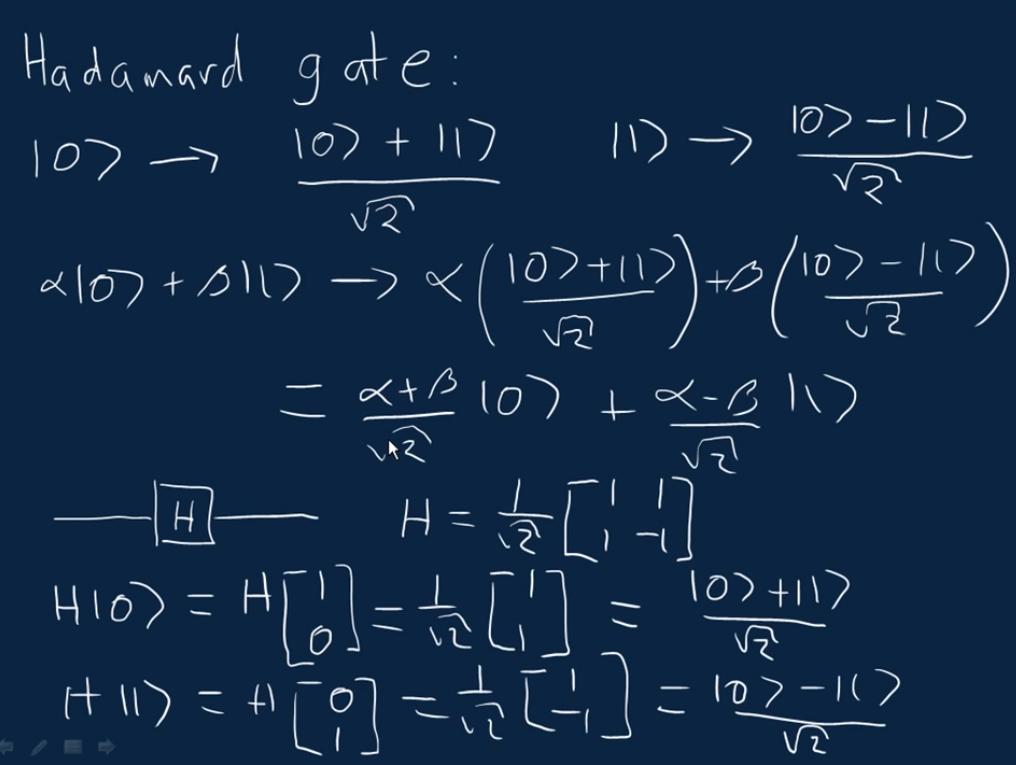 Hadamard gate:
|0⟩ → (|0⟩ + |1⟩)/√2    |1⟩ → (|0⟩ − |1⟩)/√2
α|0⟩ + β|1⟩ → α((|0⟩ + |1⟩)/√2) + β((|0⟩ − |1⟩)/√2)
= (α+β)/√2 |0⟩ + (α−β)/√2 |1⟩
H    H = 1/√2 [1 1; 1 −1]
H|0⟩ = H[1; 0] = 1/√2 [1; 1] = (|0⟩ + |1⟩)/√2
H|1⟩ = H[0; 1] = 1/√2 [1; −1] = (|0⟩ − |1⟩)/√2